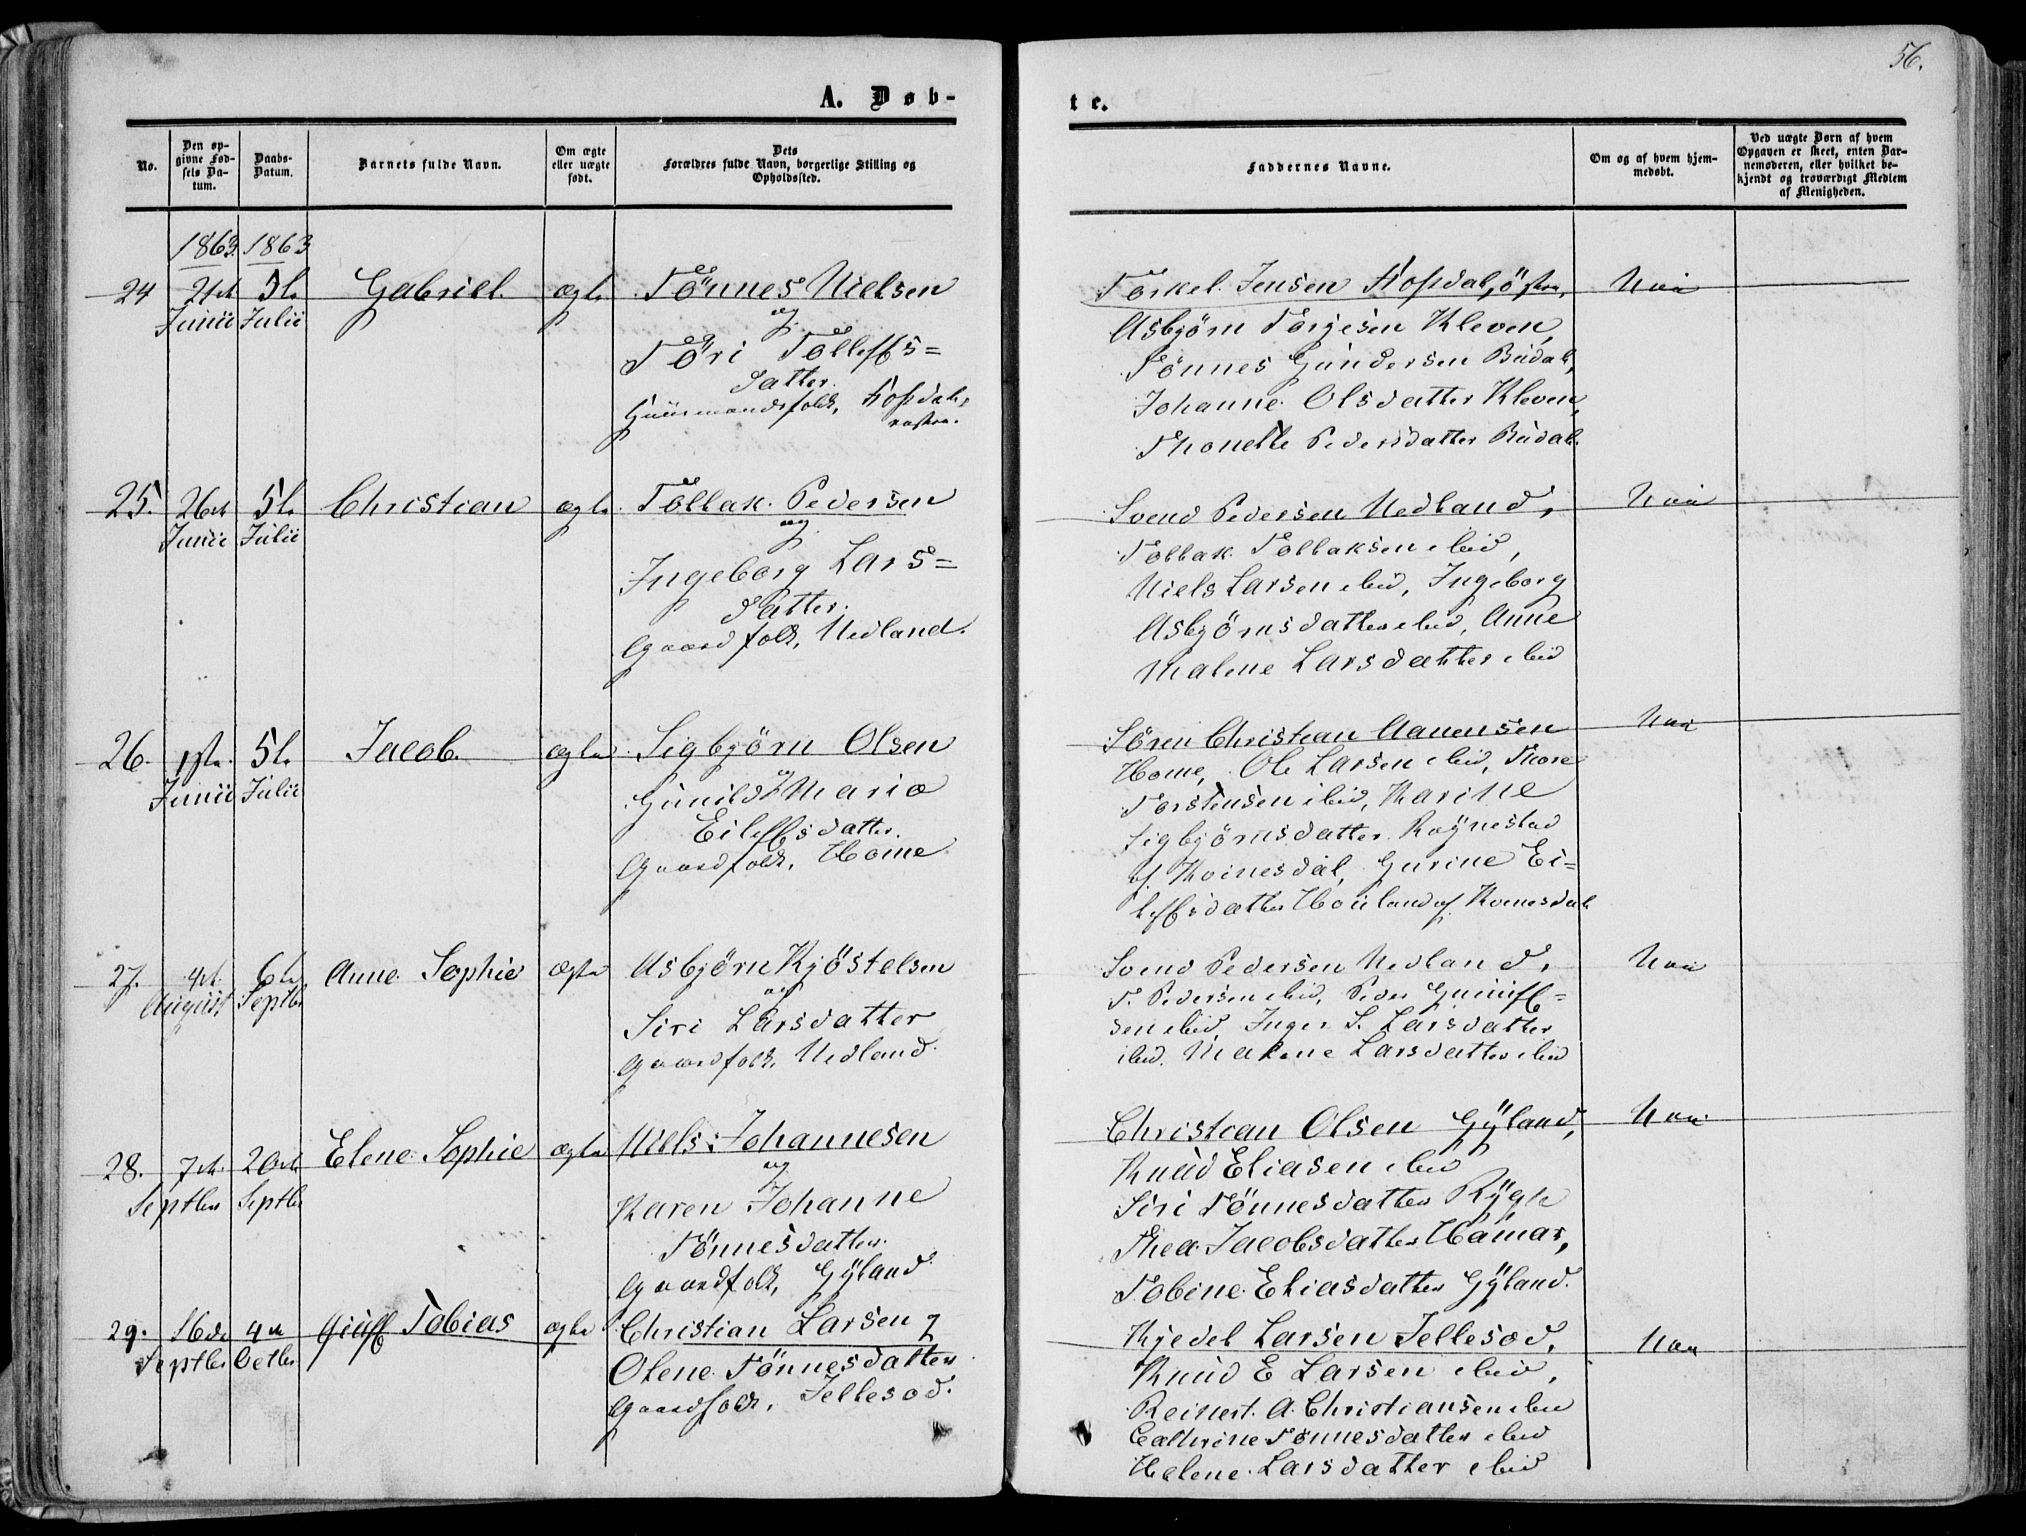 56.
A. Døb-
te.
No.
Den op-
givne Fød-
sels Da-
tum.
Daabs-
Datum.
Barnets fulde Navn.
Om ægte
eller uægte
født.
Dets
Forældres fulde Navn, borgerlige Stilling og
Opholdssted.
Faddernes Navne.
Om og af hvem hjem-
medøbt.
Ved uægte Børn af hvem
Opgaven er skeet, enten Bar-
nemoderen, eller hvilket be-
kjendt og troværdigt Medlem
af Menigheden.
1863. 1863
24 21de 5te Gabriel. ægte Tönnes Nielsen
Junii Julii
og
Töri Tollefs=
datter.
Huusmandsfolk,
Torkel Jensen
Asbjörn Torjesen Kleven,
Tönnes Gundersen Büdal,
Johanne Olsdatter Kleven,
Thonette Pedersdatter Büdal.
25. 26de 5te Christian ægte Tollak Pedersen
Junii Julii
og
Ingeborg Lars=
datter.
Gaardfolk, Nedland.
Svend Pedersen Nedland,
Tollak Tollaksen ibid,
Niels Larsen ibid, Ingeborg
Asbjörnsdatter ibid, Anne
Malene Larsdatter ibid
26. 1ste 5te Jacob. ægte Sigbjörn Olsen
Junii Julii
og
Gunild Maria
Eilefsdatter.
Gaardfolk, Home
Sören Christian Aanensen
Home, Ole Larsen ibid, Thore
Torstensen ibid, Karine
Sigbjörnsdatter Röynestad
af Kvinesdal, Gurine Ei=
lefsdatter Houland af Kvinesdal
27. 4de 6te Anne Sophie ægte Asbjörn Kjöstelsen
August Septbr
og
Siri Larsdatter
Gaardfolk, Nedland.
Svend Pedersen Nedland,
T. Pedersen ibid, Peder Guniuf=
sen ibid, Inger S. Larsdatter
ibid. Malene Larsdatter ibid
28. 7de 20de Elene Sophie ægte Niels Johannesen
Septbr Septbr
og
Karen Johanne
Tönnesdatter.
Gaardfolk, Gyland.
Christian Olsen Gyland,
Knud Eliasen ibid
Siri Tönnesdatter
Thea Jacobsdatter Hamar,
Tobine Eliasdatter Gyland.
29. 16de 4de Tobias ægte Christian Larsen og
Septbr Octbr
Olene Tönnesdatter
Gaardfolk, Jellesod.
Kjedel Larsen Jellesod,
Knud E Larsen ibid,
Reinert A. Christiansen ibid
Cathrine Tönnesdatter ibid
Helene Larsdatter ibid